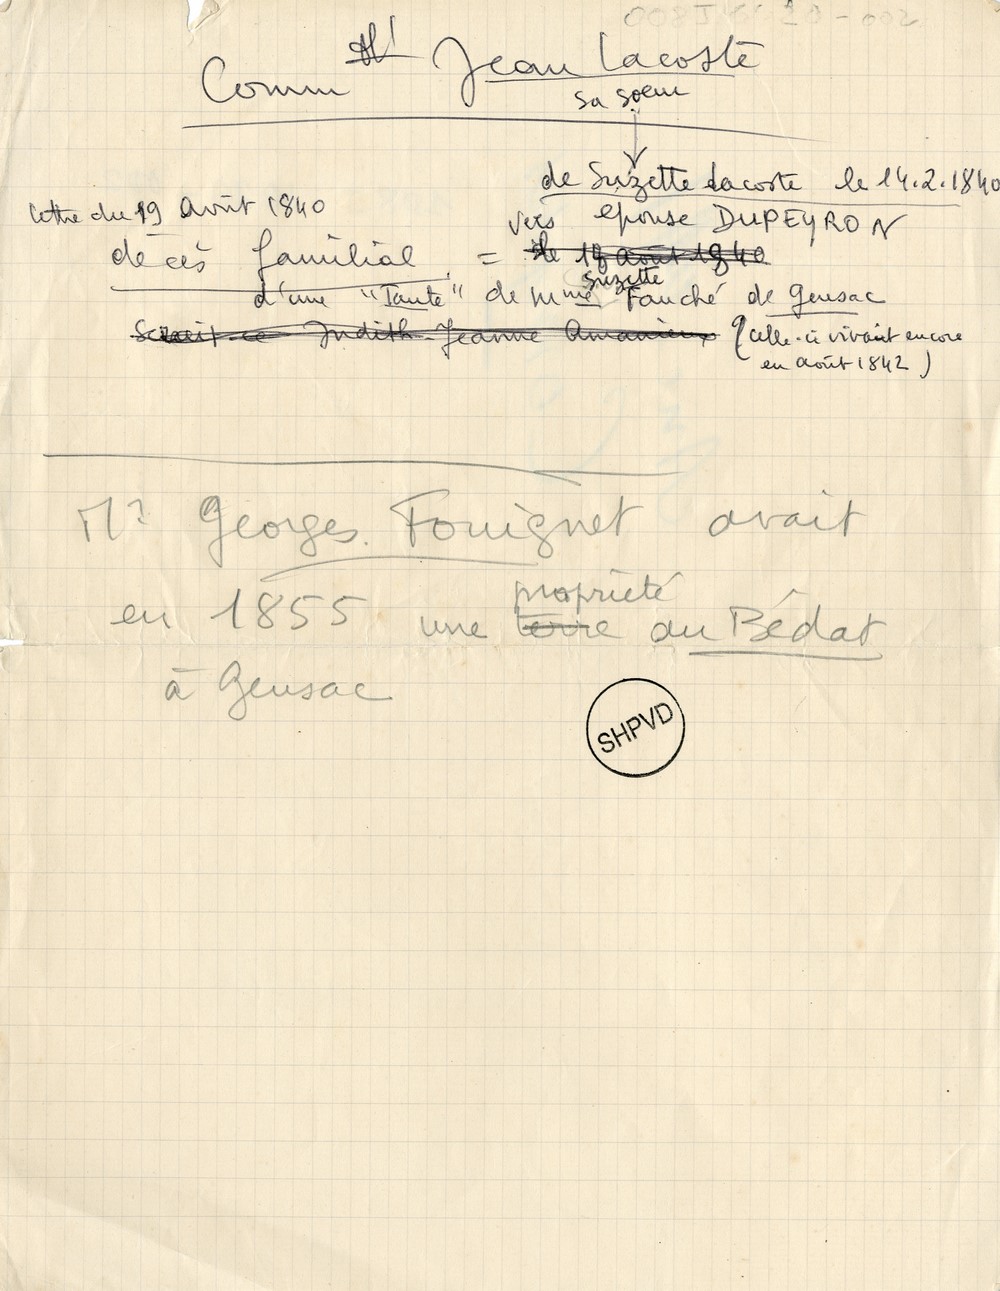 Comm Jean Lacoste
sa soeur
de Suzette Lacoste le 14.2.1840
lettre du 19 Août 1840
vers épouse DUPEYRON
décès familial = le 19 août 1840
suzette
d'une "Tante" de Mme Fouché de Gensac
Serait-ce Judith-Jeanne Amanieux (celle-ci vivait encore
en août 1842)
Mr Georges Fouignet avait
propriété
en 1855 une terre au Bédat
à Gensac
SHPVD